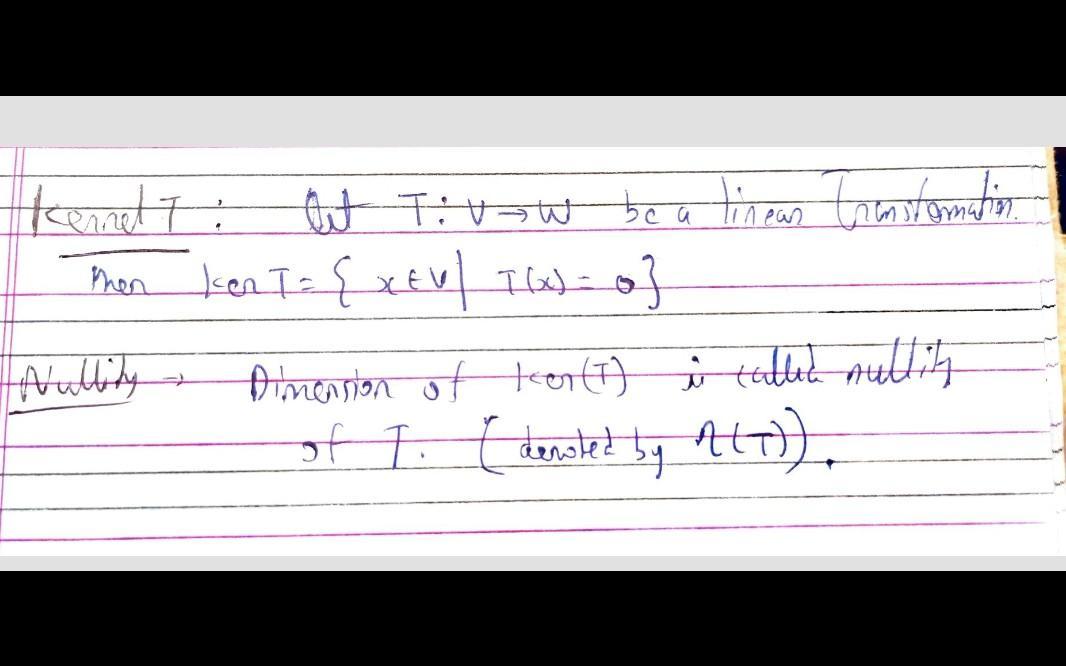 Kernel T : Let T: V → W be a linear Transformation.
Then Ker T = { x ∈ V | T(x) = 0 }
Nullity → Dimension of Ker(T) is called nullity
of T. (denoted by η(T)).